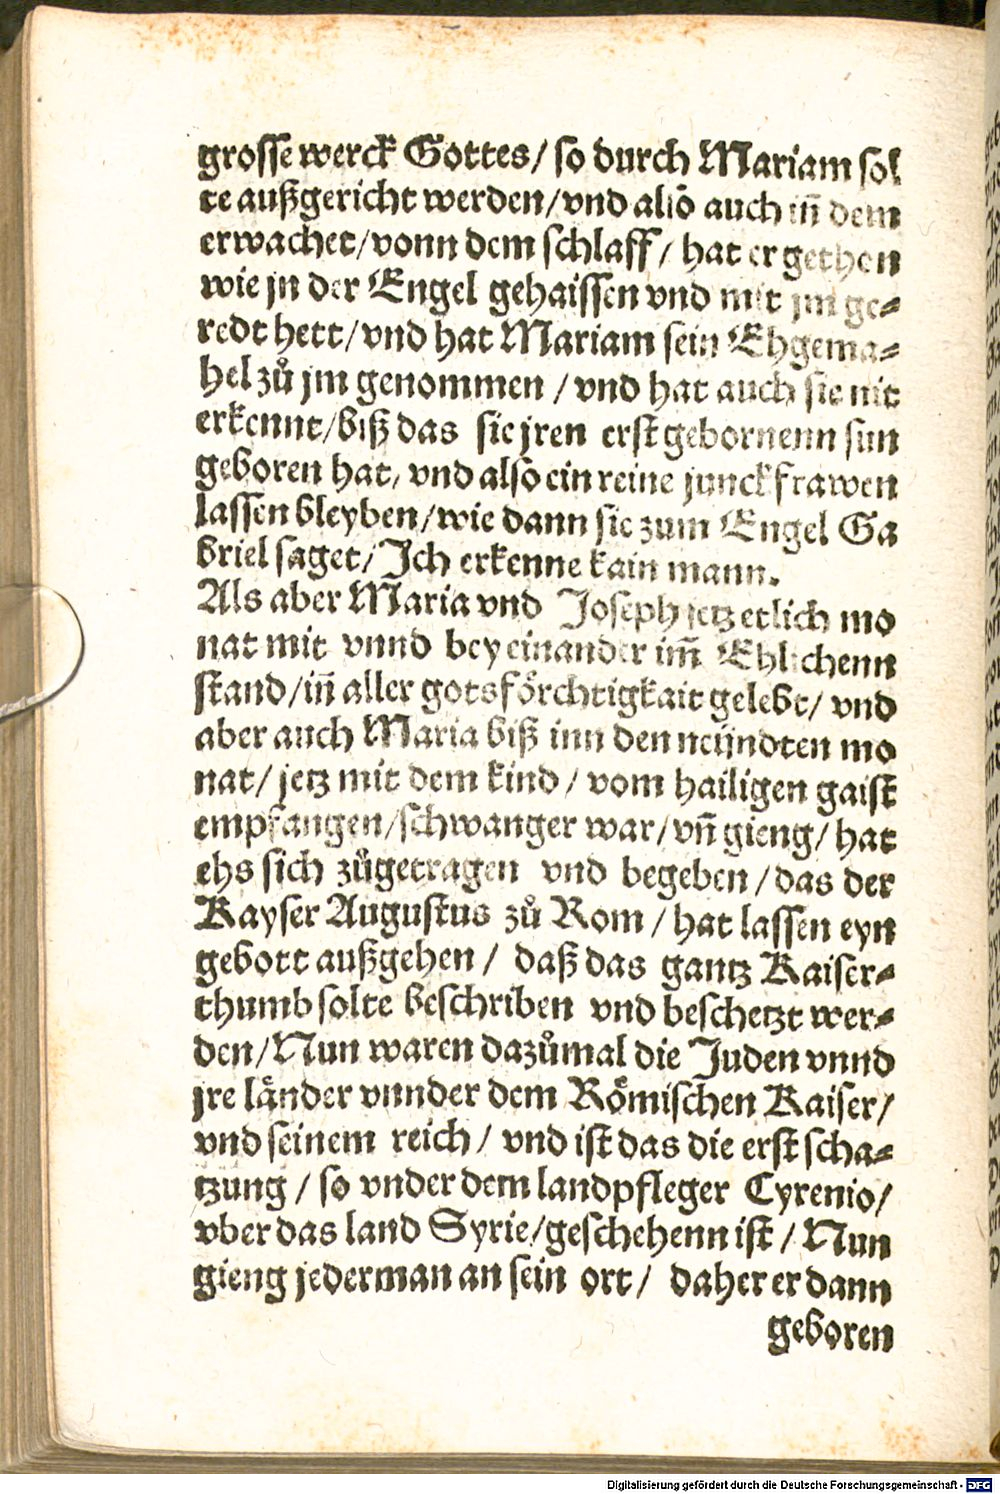 grosse werck Gottes/ so durch Mariam sol
te außgericht werden/vnd also auch iñ dem
erwachet/vonn dem schlaff/ hat er gethon
wie jn der Engel gehaissen vnd mit jm ge⸗
redt hett/vnd hat Mariam sein Ehgema⸗
hel zů jm genommen /vnd hat auch sie nit
erkennt/biß das sie jren erstgebornenn sun
geboren hat, vnd also ein reine junckfrawen
lassen bleyben/wie dann sie zum Engel Ga
briel saget/ Ich erkenne kain mann.
Als aber Maria vnd Joseph jetz etlich mo
nat mit vnnd bey einander im̃ Ehlichenn
stand/iñ aller gotsförchtigkait gelebt/ vnd
aber auch Maria biß inn den neündten mo
nat/ jetz mit dem kind/ vom hailigen gaist
empfangen/schwanger war/vñ gieng/ hat
ehs sich zůgetragen vnd begeben/das der
Kayser Augustus zů Rom/hat lassen eyn
gebott außgehen/ daß das gantz Kaiser⸗
thumb solte beschriben vnd beschetzt wer⸗
den/Nun waren dazůmal die Juden vnnd
jre länder vnnder dem Römischen Kaiser/
vnd seinem reich/ vnd ist das die erst scha⸗
tzung/ so vnder dem landpfleger Cyrenio/
vber das land Syrie/geschehenn ist/Nun
gieng jederman an sein ort/ daher er dann
geboren
Digitalisierung gefördert durch die Deutsche Forschungsgemeinschaft - DFG